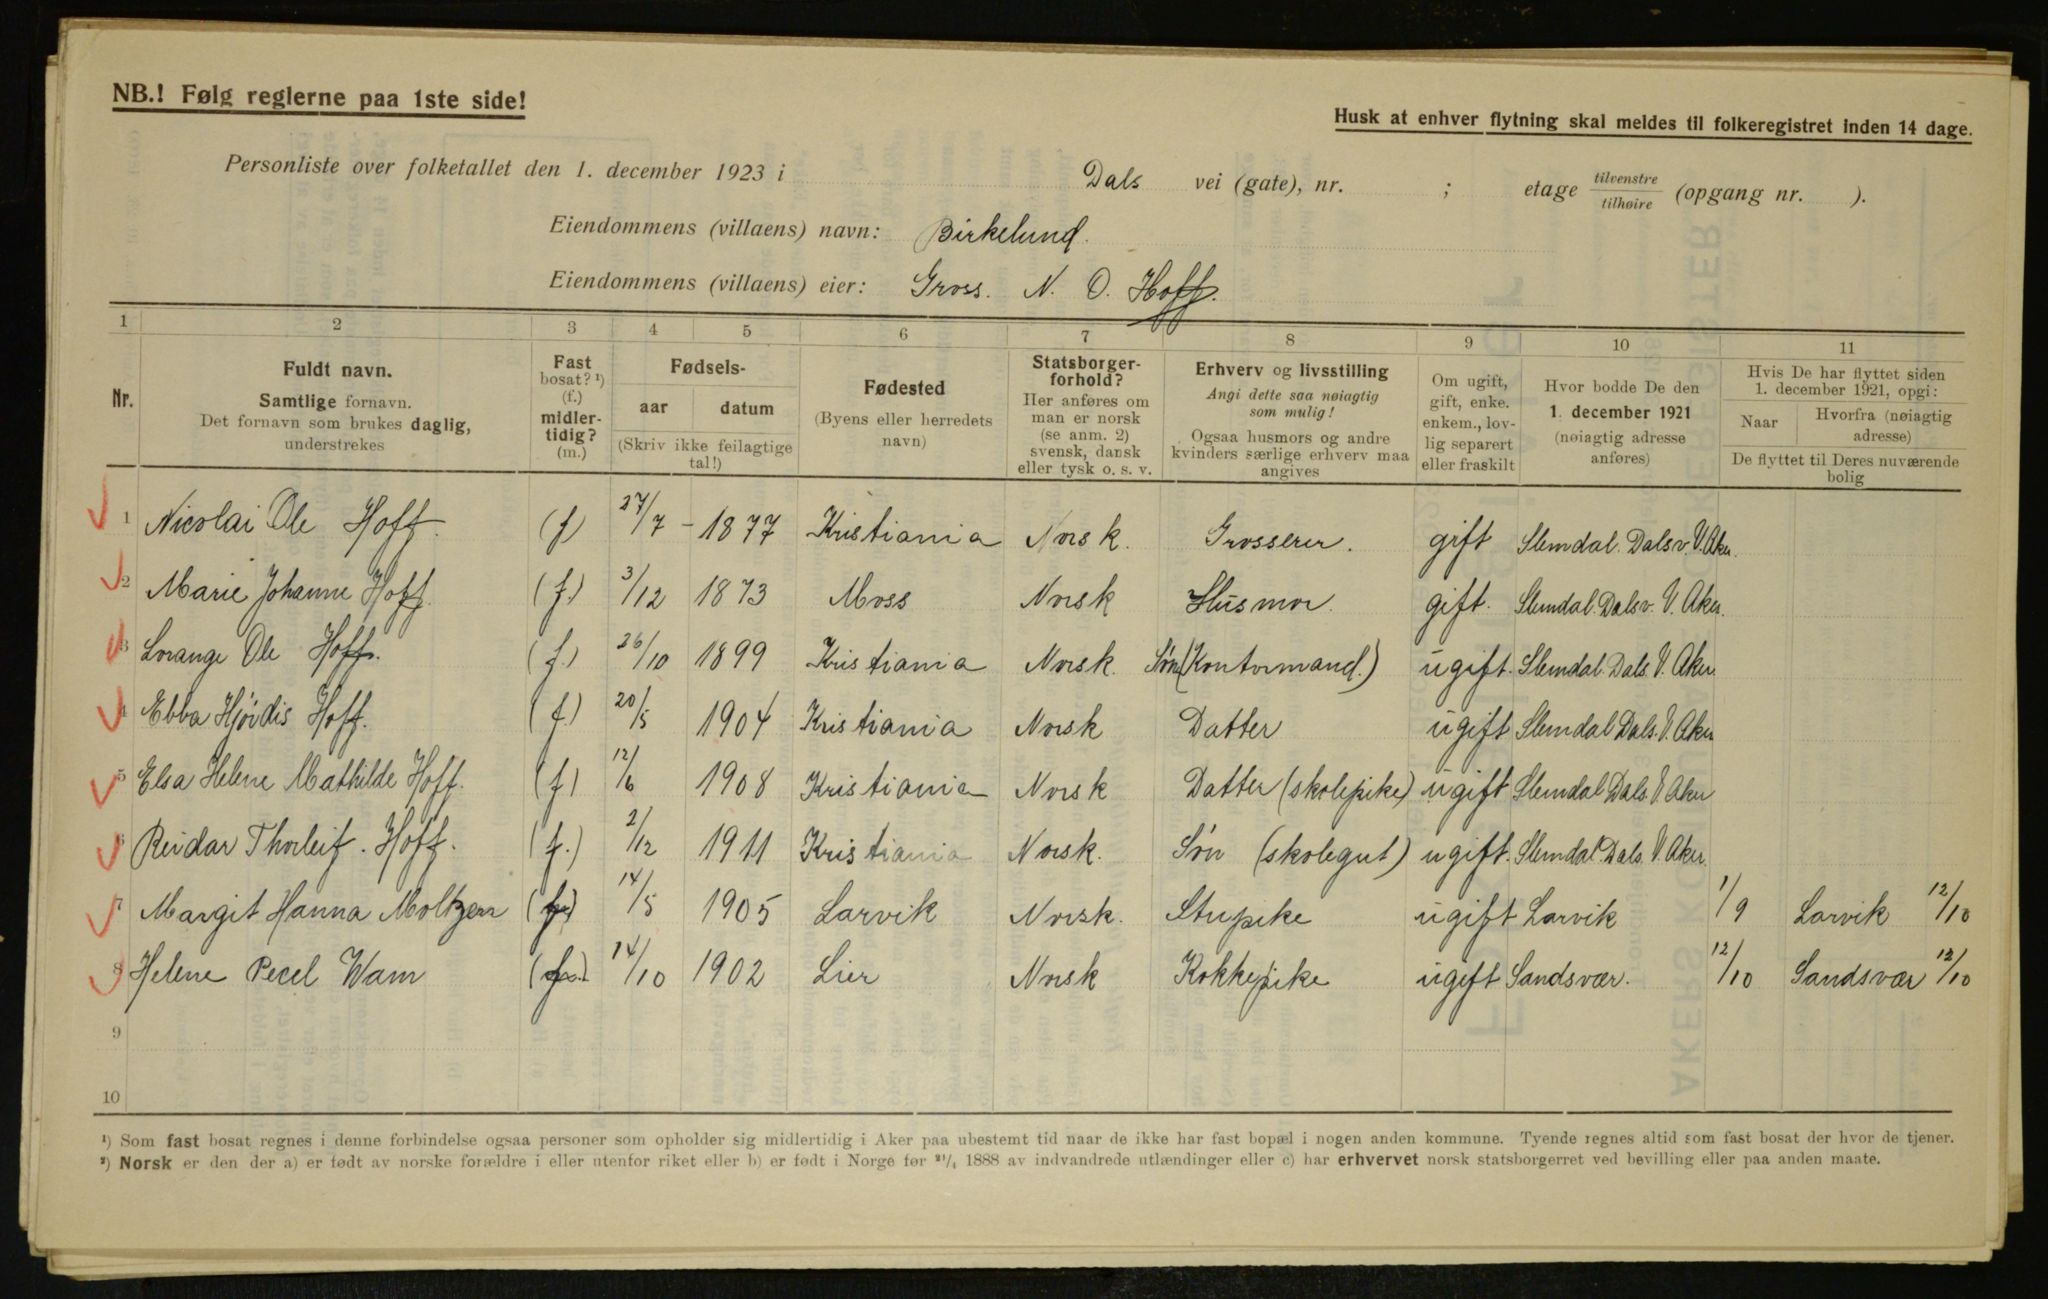 NB.! Følg reglerne paa 1ste side!
Husk at enhver flytning skal meldes til folkeregistret inden 14 dage.
Personliste over folketallet den 1. december 1923 i Dals vei (gate), nr. ; etage tilvenstre / tilhøire (opgang nr. ).
Eiendommens (villaens) navn: Birkelund.
Eiendommens (villaens) eier: Gross. N. O. Hoff.
1 2 3 4 5 6 7 8 9 10 11
Nr.
Fuldt navn.
Samtlige fornavn.
Det fornavn som brukes daglig,
understrekes
Fast
bosat? ¹)
(f.)
midler-
tidig?
(m.)
Fødsels-
aar datum
(Skriv ikke feilagtige
tal!)
Fødested
(Byens eller herredets
navn)
Statsborger-
forhold?
Her anføres om
man er norsk
(se anm. 2)
svensk, dansk
eller tysk o. s. v.
Erhverv og livsstilling
Angi dette saa nøiagtig
som mulig!
Ogsaa husmors og andre
kvinders særlige erhverv maa
angives
Om ugift,
gift, enke.
enkem., lov-
lig separert
eller fraskilt
Hvor bodde De den
1. december 1921
(nøiagtig adresse
anføres)
Hvis De har flyttet siden
1. december 1921, opgi:
Naar Hvorfra (nøiagtig
adresse)
De flyttet til Deres nuværende
bolig
1 Nicolai Ole Hoff. (f) 27/7 - 1877 Kristiania Norsk. Grosserer. gift Slemdal. Dalsv. V. Aker.
2 Marie Johanne Hoff. (f.) 3/12 1873 Moss Norsk Husmor. gift. Slemdal. Dalsv. V. Aker.
3 Lorange Ole Hoff. (f.) 26/10 1899 Kristiania Norsk. Søn (Kontormand.) ugift. Slemdal. Dals. V. Aker.
4 Ebba Hjördis Hoff. (f.) 20/5 1904 Kristiania Norsk Datter ugift Slemdal Dals. V. Aker
5 Elsa Helene Mathilde Hoff. (f) 12/6 1908 Kristiania Norsk Datter (skolepike) ugift Slemdal Dals. V. Aker
6 Reidar Thorleif. Hoff. (f.) 2/12 1911 Kristiania Norsk. Søn (skolegut) ugift. Slemdal. Dals. V. Aker.
7 Margit Hanna Moltzen (f.) 14/5 1905 Larvik Norsk. Stupike ugift Larvik 1/9 Larvik 12/10
8 Helene Pecel Wam (f.) 14/10 1902 Lier Norsk Kokkepike ugift Sandsvær. 12/10 Sandsvær 12/10
9
10
¹) Som fast bosat regnes i denne forbindelse ogsaa personer som opholder sig midlertidig i Aker paa ubestemt tid naar de ikke har fast bopæl i nogen anden kommune. Tyende regnes altid som fast bosat der hvor de tjener.
²) Norsk er den der a) er født av norske forældre i eller utenfor riket eller b) er født i Norge før ²¹/₁ 1888 av indvandrede utlændinger eller c) har erhvervet norsk statsborgerret ved bevilling eller paa anden maate.